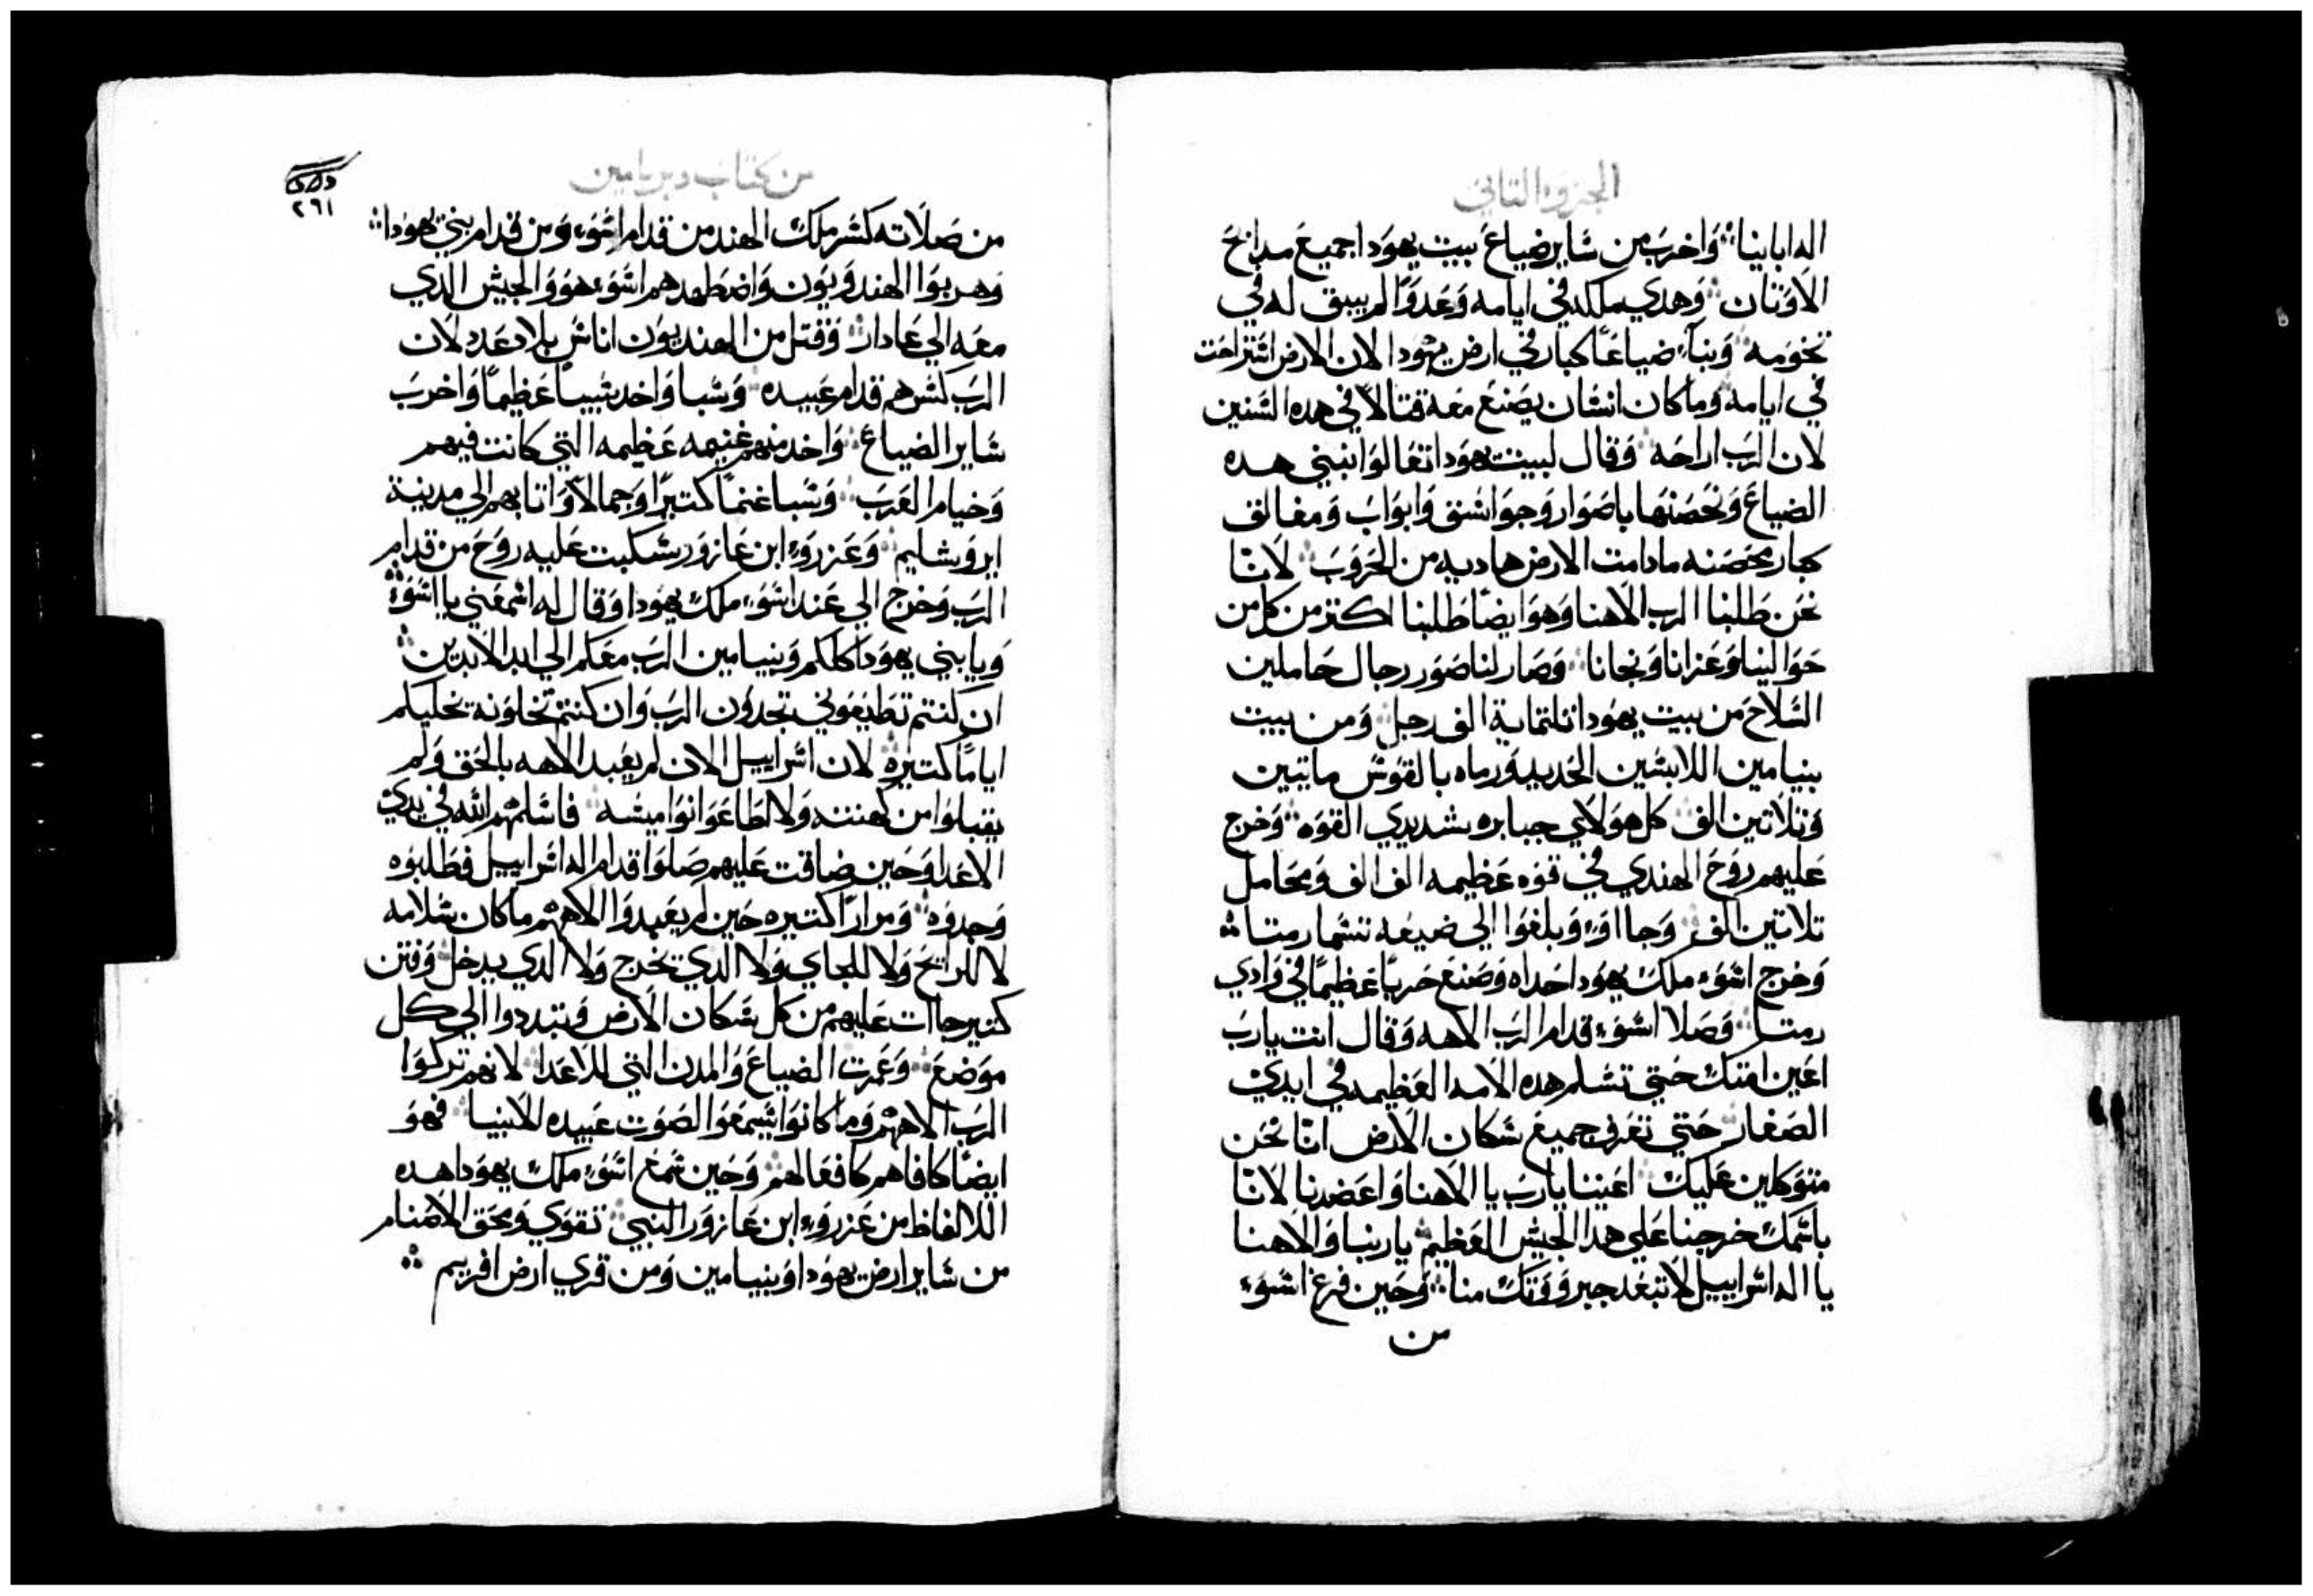 الجزو التاني
اله ابايناۛ وَاخربَ من سَاير ضياعَ بيت يهوَدا جميعَ مدابحَ
الاوَتان وَهدي مملكته في ايامه وَعَدوًا لم يبق له في
تخوَمه وَبناءَ ضياعًا كبار في ارض يهَودا لان الارض استراحَت
في ايامه وَما كان انسَان يصَنعَ معَه قتالاً في هده السَنين
لان الربَ اراحَه وَقال لبيت يهوَدا تعَالوَا نبني هده
الضياعَ وَنحَصَنها باصَوار وَجوَاسَق وَابوَابَ وَمغالق
كبار محَصَنه ما دامت الارض هاديه من الحَروَبَ لانّا
نحَن طَلبنا الربَ الاهنا وَهوَ ايضًا طَلبنا اكتر من كل من
حَوَالينا وَعَزانا وَنجانا وَصَار لنا صَوَر رجال حَاملين
السَلاحَ من بيت يهوَدا تلتماية الف رجل وَمن بيت
بنيامين اللابسَين الحَديد وَرماه بالقوَسَ مايتين
وَتلاتين الف كل هوَلاي جبابره شديدي القوَه وَخرج
عَليهم روَحَ الهندي في قوَه عَظيمه الف الف وَمحَامل
تلاتين الف وَجا اوَ وَبلغوَا الي ضيعَه تسَما رمتا
وَخرج اسَوَء ملكَ يهوَدا حَداه وَصَنعَ حَربًا عَظيمًا في وَادي
رمتا وَصَلا اسَوَء قدام الربَ الاهه وَقال انت ياربَ
اعَين امتكَ حَتي تسَلم هده الامه العَظيمه في ايدي
الصَغار حَتي تعَرف جميعَ سَكان الارض انّا نحَن
متوَكلين عَليكَ اعَيننا ياربَ يا الاهنا وَاعَضدنا لانّا
باسَمكَ خرجنا عَلي هدا الجيش العَظيم ياربنا وَالاهنا
يا اله اسَراييل لا تبعَد جبروَوَتكَ منا وَحَين فرغ اسَوَء
من
من كتاب دبريامين
٢٦١
من صَلاته كسَر ملكَ الهند من قدام اسَوَء وَمن قدام بني يهوَدا
وَهربوَا الهندوَيوَن وَاضطَهدهم اسَوَء هوَ وَالجيش الدي
معَه الي عَادار وَقتل من الهنديوَن اناسَ بلا عَدد لان
الربَ كسَرهم قدام عَبيده وَسَبا وَاخد سَبيًا عَظيمًا وَاخربَ
سَاير الضياعَ وَاخد منهم غنيمه عَظيمه التي كانت فيهم
وَخيام العَربَ وَسَبا غنمًا كتيرًا وَجمالاً وَاتا بهم الي مدينة
ايروَشليم وَعَزروَء ابن عَازوَر سَكبت عَليه روَحَ من قدام
الربَ وَخرج الي عَند اسَوَء ملكَ يهوَدا وَقال له اسَمعَني يا اسَوَء
وَيا بني يهوَدا كلكم وَبنيامين الربَ معَكم الي ابد الابدين
ان كنتم تطَيعَوَني تجدوَن الربَ وَان كنتم تخلوَنه يخليكم
ايامًا كتيره لان اسَراييل الان لم يعَبد الاهه بالحَق وَلم
يقبلوَا من كهنته وَلا اطَاعَوَا نوَاميسَه فاسَلمهم الله في يدي
الاعَدا وَحَين ضاقت عَليهم صَلوَا قدام اله اسَراييل فطَلبوَه
وَجدوَه وَمرارًا كتيره حَين لم يعَبدوَا الاههم ما كان سَلامه
لا للرايحَ وَلا للجاي وَلا الدي يخرج وَلا الدي يدخل وَفتن
كتير جاات عَليهم من كل سَكان الارض وَتبددوا الي كل
موَضعَ وَعَمرت الضياعَ وَالمدن التي للاعَدا لانهم تركوَا
الربَ الاههم وَما كانوَا يسَمعَوَا لصَوَت عَبيده الانبيا فهوَ
ايضًا كافاهم كافعَالهم وَحَين سَمعَ اسَوَء ملكَ يهوَدا هده
الالفاظ من عَزروَء ابن عَازوَر النبي تقوَي وَمحَق الاصَنام
من سَاير ارض يهوَدا وَبنيامين وَمن قري ارض افريم